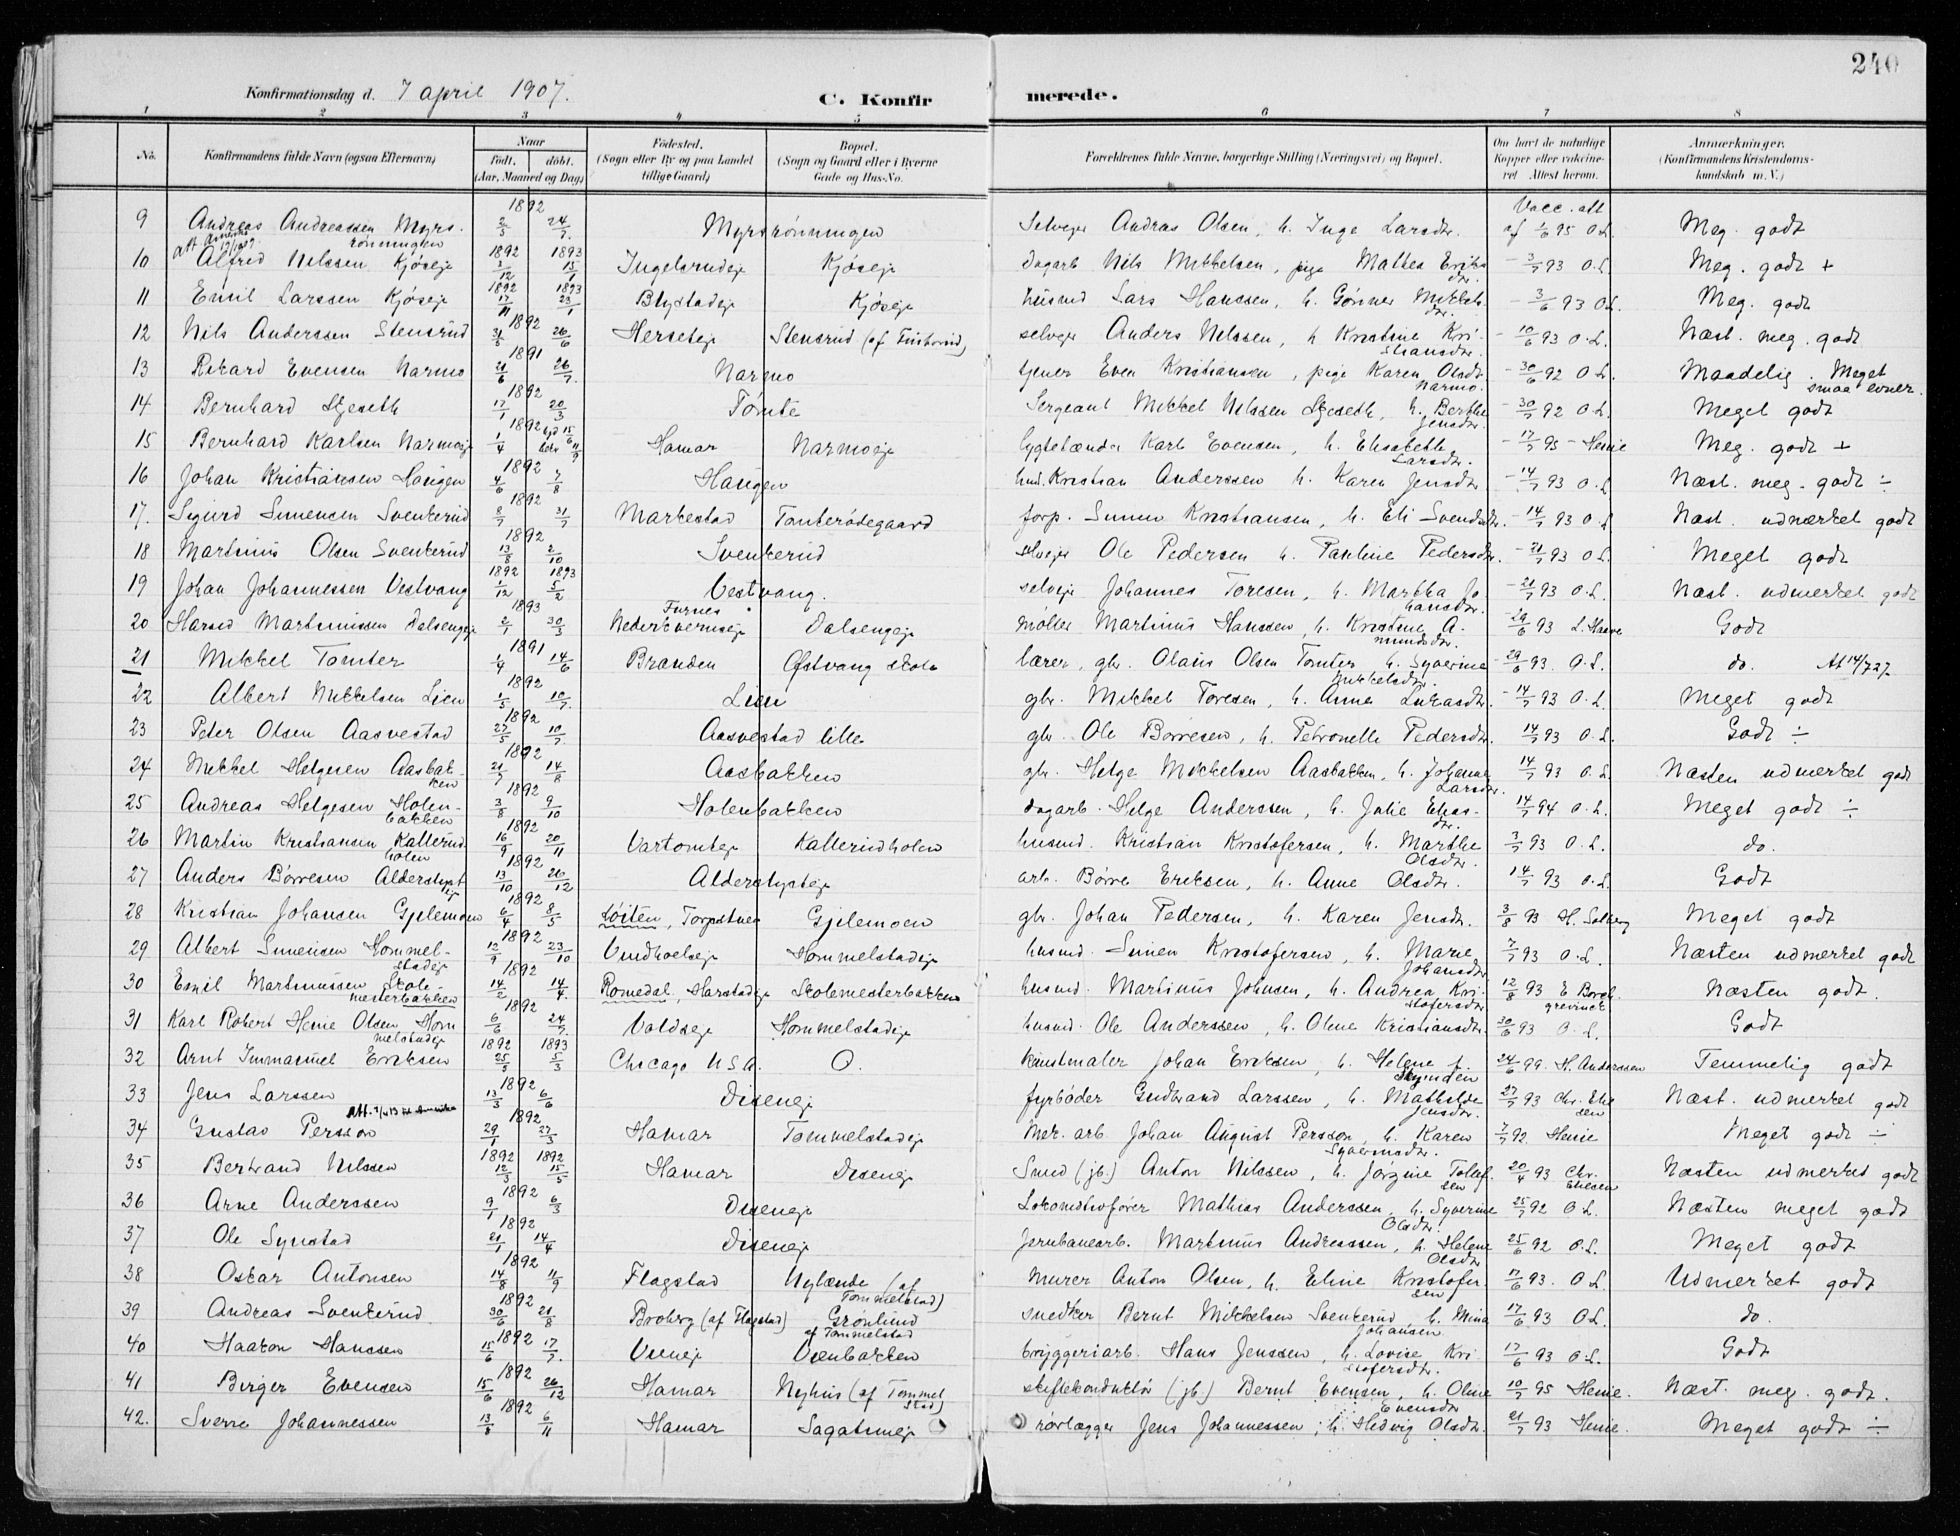 240
Konfirmationsdag d. 7 april 1907.
C. Konfirmerede.
1 2 3 4 5 6 7 8
No. Konfirmandens fulde Navn (ogsaa Efternavn) Naar født, døbt. (Aar, Maaned og Dag) Fødested. (Sogn eller By og paa Landet tillige Gaard) Bopæl. (Sogn og Gaard eller i Byerne Gade og Hus-No. Forældrenes fulde Navne, borgerlige Stilling (Næringsvei) og Bopæl. Om havt de naturlige Kopper eller vaccineret. Attest herom. Anmærkninger. (Konfirmandens Kristendomskundskab m. V.)
9 Andreas Andreassen Myrsrönningen 1892 2/3 24/7 Myrsrönningen Selveier Andras Olsen, h. Inge Larsdtr. Vacc. att af 1/6 95 O.L. Meg. godt
10 Alfred Nilssen Kjöseje 1892 3/12 1893 15/1 Ingelsrudeje Kjöseje dagarb Nils Mikkelsen, pige Mathea Eriksdtr. 3/7 93 O.L. Meg. godt +
11 Emil Larssen Kjöseje 1892 17/11 1893 23/1 Blystadeje Kjöseje husmd Lars Hanssen, h. Gönner Mikkelsdtr. 3/6 93 O.L. Meg. godt
12 Nils Anderssen Stensrud 1892 31/5 26/6 Herseteje Stensrud selvejer Anders Nilssen, h Kristine Kristiansdtr. 10/6 93 O.L. Næst. meg. godt
13 Rikard Evensen Narmo 1891 21/6 26/7 Narmo tjener Even Kristiansen, pige Karen Olsdtr Narmo. 30/6 92 O.L. Maadelig. Meget smaa evner.
14 Bernhard Skjeseth 1892 17/1 20/3 Tömte Sergeant Mikkel Nilssen Skjeseth, h. Berthe Jensdtr. 30/7 92 O.L. Meget godt
15 Bernhard Karlsen Narmoeje 1892 1/4 Hamar Narmoeje lygtetænder Karl Evensen, h. Elisabeth Larsdtr. 17/7 95 Henie Meg. godt +
16 Johan Kristiansen Haugen 1892 4/6 7/8 Haugen husm. Kristian Anderssen h. Karen Jensdtr 14/7 93 O.L Næst. meg. godt ÷
17. Sigurd Simensen Svenkerud 1892 8/7 31/7 Markestad Tomterödegaard forp. Simen Kristiansen, h. Eli Svendsdtr. 14/7 93 O.L Næst. udmerket godt
18 Martinus Olsen Svenkerud 1892 13/8 2/10 Svenkerud selvejer Ole Pedersen h. Pauline Pedersdtr. 21/7 93 O.L. Meget godt
19 Johan Johannessen Vestvang 1892 1/12 1893 5/2 Vestvang. selvejer Johannes Toresen, h. Martha Johansdtr. 21/7 93 O.L. Næst. udmerket godt
20 Harald Martinussen Dalsengeje 1893 2/1 30/3 Furnes Dalsengeje möller Martinus Hanssen, h. Kristine Amundsdtr. 29/6 93 Godt
21 Mikkel Tomter 1891 1/4 14/6 Branden Östvang skole lærer, gbr. Olaus Olsen Tomter, h. Syverine Mikkelsdtr. 29/6 93. O.L. do. At 14/7 27.
22 Albert Mikkelsen Lien 1892 1/5 10/7 Lien gbr. Mikkel Toresen, h. Anne Lukasdtr. 14/7 93 O.L. Meget godt
23 Peter Olsen Aasvestad 1892 27/5 10/7 Aasvestad lille gbr. Ole Börresen, h. Petronelle Pedersdtr. 14/7 93 O.L. Godt ÷
24 Mikkel Helgesen Aasbakken 1892 21/7 14/8 Aasbakken gbr. Helge Mikkelsen Aasbakken, h. Johanne Larsdtr. 14/7 93 O.L. Næsten udmerket godt
25 Andreas Helgesen Holenbakken 1892 3/8 9/10 Holenbakken dagarb. Helge Anderssen, h. Julie Eliasdtr. 14/7 94 O.L. Meget godt ÷
26 Martin Kristiansen Kallerudholen 1892 16/9 20/11 Vartomteje Kallerudholen husmd. Kristian Kristofersen, h. Marthe Olsdtr. 3/7 93 O.L. do.
27 Anders Börresen Alderslysteje 1892 13/10 26/12 Alderslysteje arb. Börre Eriksen, h. Anne Olsdtr. 14/7 93 O.L. Godt
28 Kristian Johansen Gjelemoen 1892 6/4 8/5 Löiten, Gjelemoen gbr. Johan Pedersen, h. Karen Jensdtr. 3/8 93 H. Solberg Meget godt
29 Albert Simensen Hommelstadeje 1892 12/9 23/10 Hommelstadeje husmd. Simen Kristofersen, h. Marie Johansdtr 7/7 93 O.L. Næsten udmerket godt
30 Emil Martinussen Skolemesterbakken 1892 14/2 14/4. Romedal, Harstadeje Skolemesterbakken husmd. Martinus Johnsen, h. Andrea Kristofersdtr 12/8 93 E Borchgrevinck Næsten godt.
31 Karl Robert Henie Olsen Hommelstadeje 1892 6/6 24/7 Voldseje Hommelstadeje husmd. Ole Anderssen, h. Oline Kristiansdtr. 30/6 93 O.L. Godt
32 Arnt Immanuel Eriksen 1892 25/5 1893 5/3 Chicago U.S.A. O. Kunstmaler Johan Eriksen, h. Helene f. 24/6 99. H. Anderssen Temmelig godt
33 Jens Larssen 1892 13/3 6/6 Diseneje fyrböder Gudbrand Larssen, h. Mathilde Jensdtr. 27/7 93 Chr. Eliesen Næst. udmerket godt
34 Gustav Persson 1892 29/1 27/3 Hamar Tommelstadeje Mek. arb Johan August Persson, h. Karen Syversdtr. 7/7 92. Henie Meget godt ÷
35 Bertrand Nilssen 1892 12/3 1892 15/5 Hamar Diseneje Smed (jb.) Anton Nilssen, h. Jörgine Tollefsen 20/4 93 Chr. Eliesen Næsten udmerket godt
36 Arne Anderssen 1892 9/1 6/3 Diseneje Lokomotivförer Mathias Anderssen, h. Syverine Olsdtr. 25/7 92 O.L. Næsten meget godt
37 Ole Synstad 1892 21/1 14/4 Diseneje Jernbanearb. Martinus Andreassen, h. Helene Olsdtr 25/6 92 O.L. Meget godt
38 Oskar Antonsen 1892 14/8 11/9 Flagstad Nylænde (af Tommelstad) Murer Anton Olsen, h. Eline Kristofersen 17/6 93. O.L Udmerket godt
39 Andreas Svenkerud 1892 30/6 21/8 Broberg (af Flagstad) Grönlund af Tommelstad snedker Bernt Mikkelsen Svenkerud, h. Mina Johansen 17/6 93 O.L. do.
40 Haakon Hanssen 1892 15/6 17/7. Vieneje Vienbakken bryggeriarb. Hans Jenssen, h. Lovise Kristofersdtr. 17/6 93 O.L. Godt
41 Birger Evensen 1892 15/6 26/12 Hamar Nyhus (af Tommelstad) skiftekonduktör (jb.) Bernt Evensen, h. Oline Evensdtr 10/7 95 Henie. Næst. meg. godt.
42. Sverre Johannessen 1892 13/8 6/11 Hamar Sagatuneje rörlægger Jens Johannessen, h. Hedvig Olsdtr. 21/7 93 Henie. Meget godt ÷